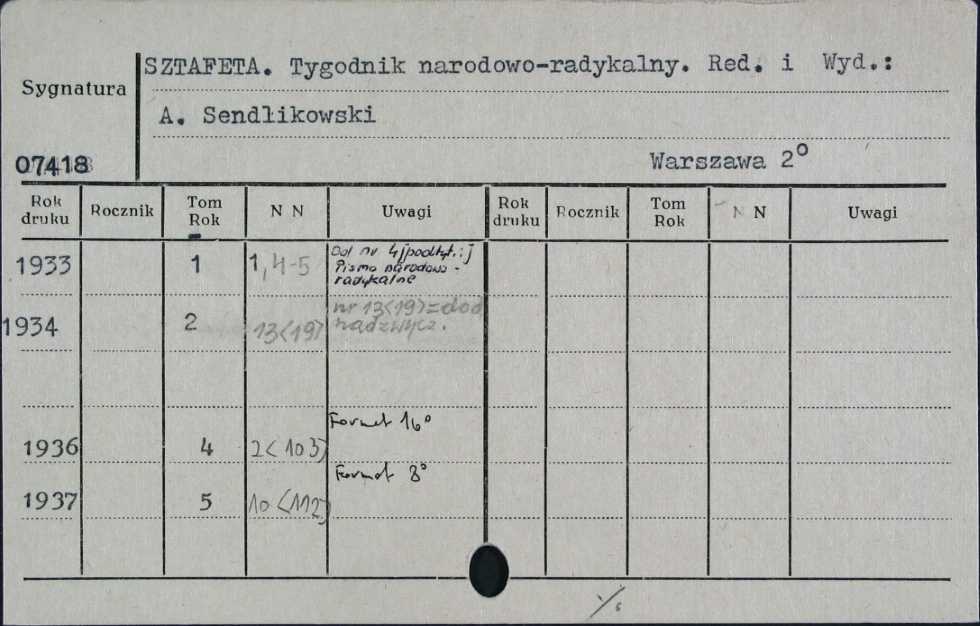 SZTAFETA. Tygodnik narodowo-radykalny. Red. i Wyd.:
Sygnatura
A. Sendlikowski
07418
Warszawa 2°
Rok druku Rocznik Tom Rok N N Uwagi Rok druku Rocznik Tom Rok N N Uwagi
1933 1 1, 4-5 Od nr 4 [podtyt.:]
Pismo narodowo-
radykalne
1934 2 13<19> nr 13<19> = dod
nadzwycz.
Format 16°
1936 4 2<103>
Format 8°
1937 5 10<112>